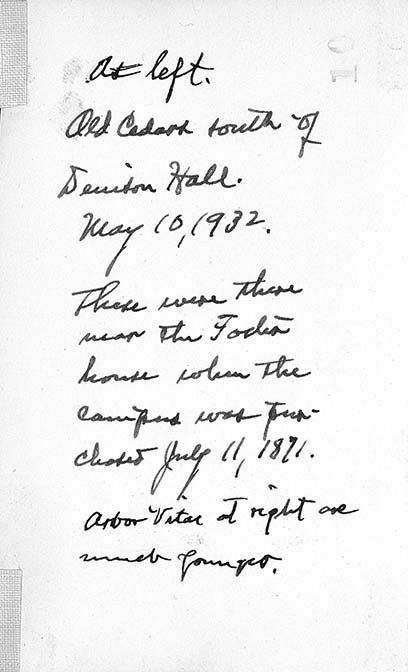 At left.
Old Cedars south of
Denison Hall.
May 10, 1932.
These were there
near the Foster
house when the
campus was pur-
chased July 11, 1871.
Arbor Vitae at right are
much younger.
10